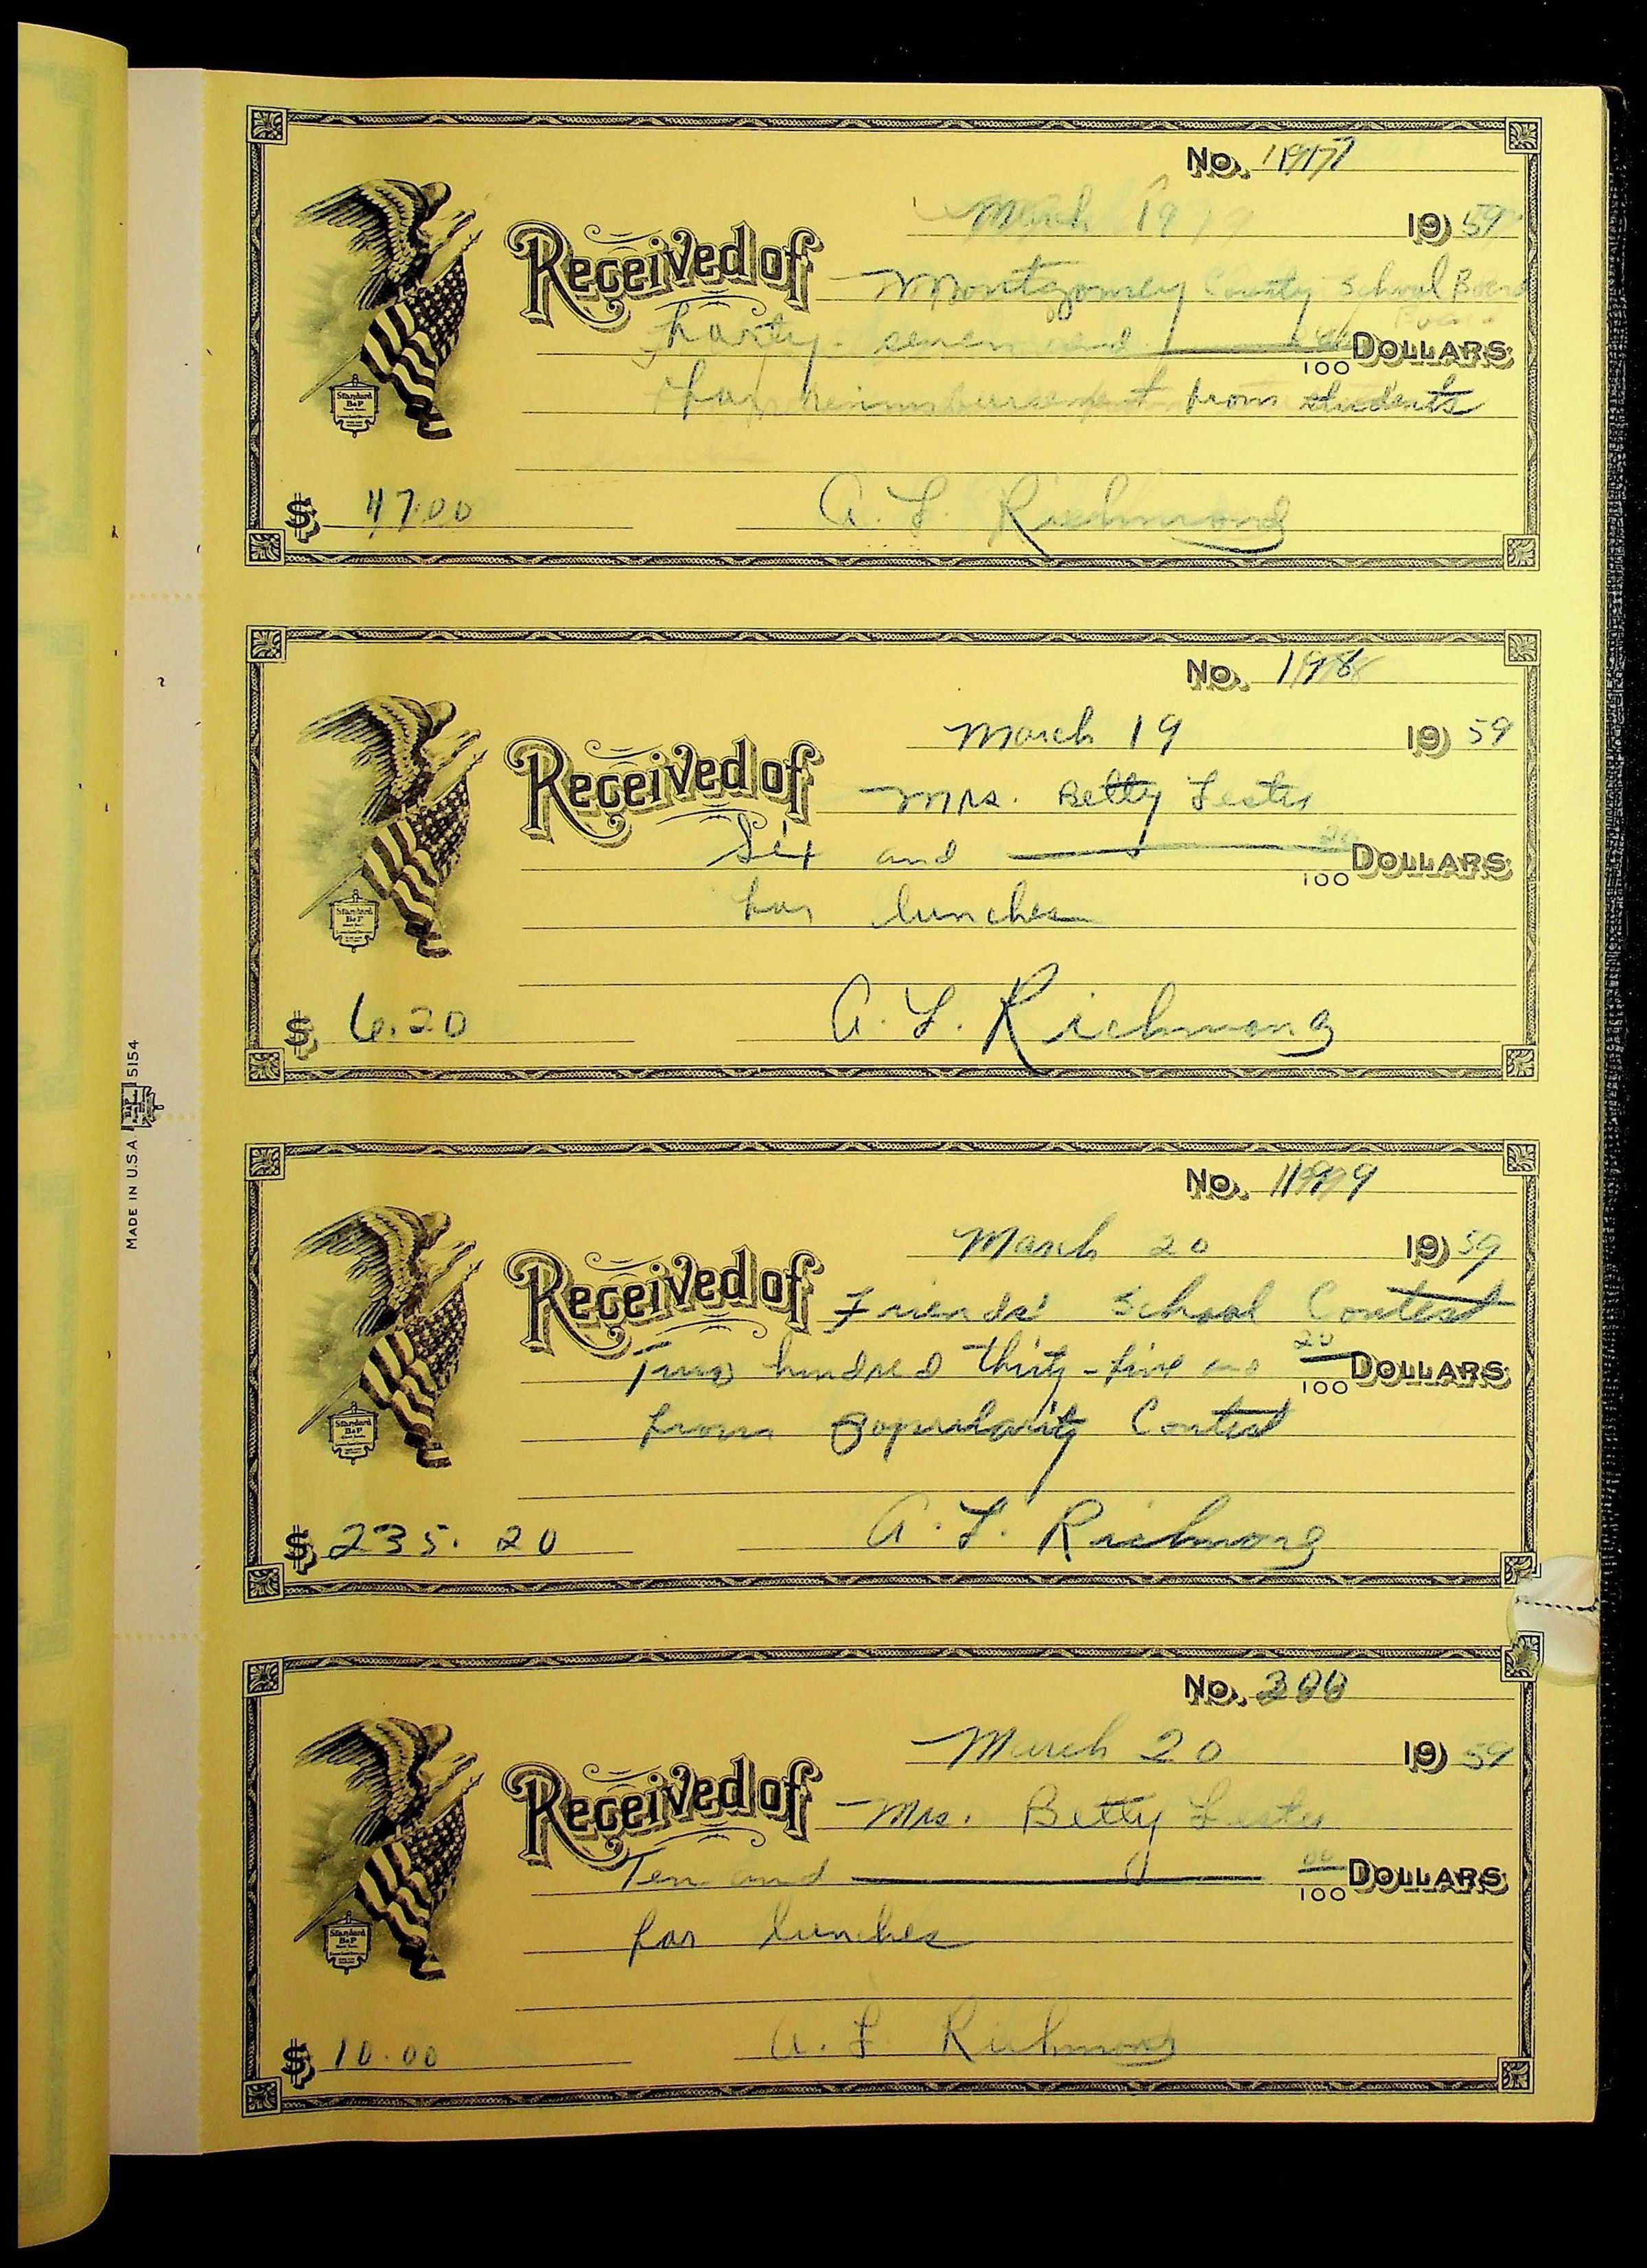 No. 197
March 19 1959
Received of Montgomery County School Board
Forty-seven and 00/100 DOLLARS
for reimbursement from students
$ 47.00 A. L. Richmond
No. 198
March 19 1959
Received of Mrs. Betty Lester
Six and 20/100 DOLLARS
for lunches
$ 6.20 A. L. Richmond
MADE IN U.S.A. B&P 5154
No. 199
March 20 1959
Received of Friends' School Contest
Two hundred thirty-five and 20/100 DOLLARS
from Popularity Contest
$ 235.20 A. L. Richmond
No. 200
March 20 1959
Received of Mrs. Betty Lester
Ten and 00/100 DOLLARS
for lunches
$ 10.00 A. L. Richmond